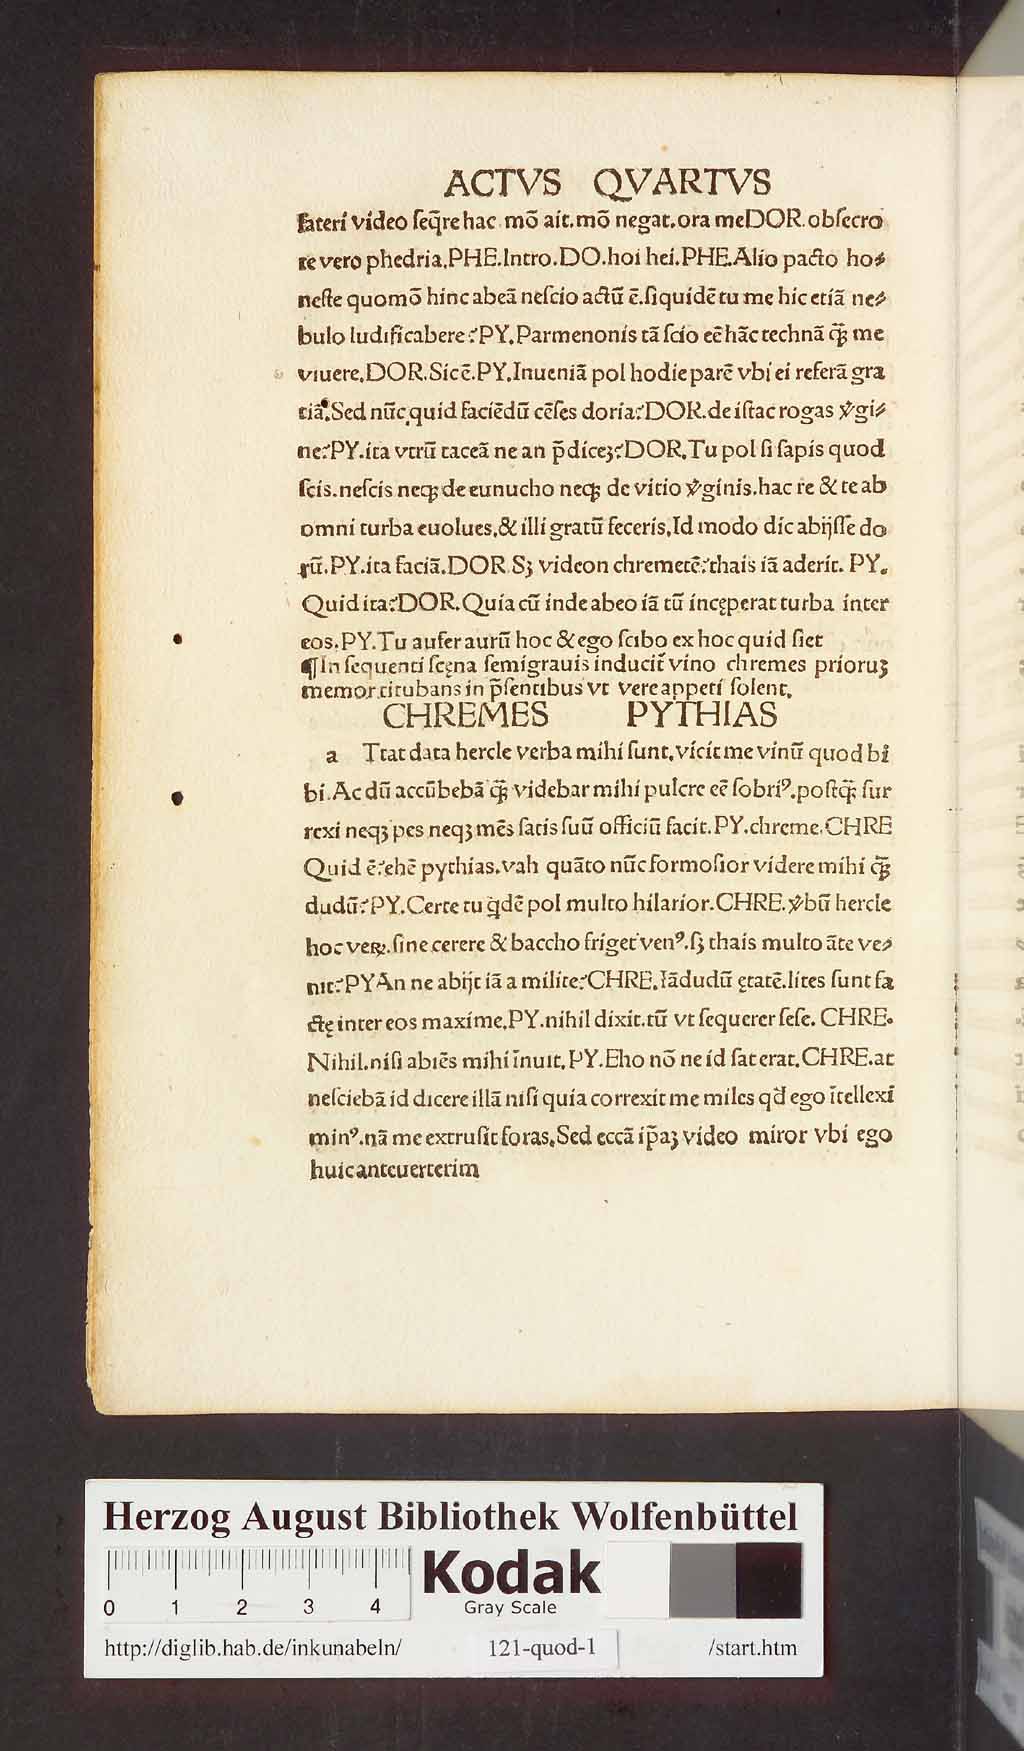 ACTVS QVARTVS
fateri video seq̃re hac mõ ait.mõ negat.ora meDOR.obsecro
te vero phedria.PHE.Intro.DO.hoi hei.PHE.Alio pacto ho⸗
neste quomõ hinc abeã nescio actũ ẽ.siquidẽ tu me hic etiã ne⸗
bulo ludificabere?PY.Parmenonis tã scio eẽ hãc technã q̃ꝫ me
viuere.DOR.Sic ẽ.PY.Inueniã pol hodie parẽ vbi ei referã gra
tiã.Sed nũc quid faciẽdũ cẽses doria?DOR.de istac rogas v̾gi⸗
ne?PY.ita vtrũ taceã ne an p̃diceꝫ?DOR.Tu pol si sapis quod
scis.nescis neqꝫ de eunucho neqꝫ de vitio v̾ginis.hac re & te ab
omni turba euolues.& illi gratũ feceris.Id modo dic abijsse do
rũ.PY.ita faciã.DOR Sꝫ videon chremetẽ?thais iã aderit. PY.
Quid ita?DOR.Quia cũ inde abeo iã tũ incęperat turba inter
eos.PY.Tu aufer aurũ hoc & ego scibo ex hoc quid siet
¶In sequenti scęna semigrauis inducit᷑ vino chremes prioruꝫ
memor.titubans in p̃sentibus vt vere appeti solent.
CHREMES PYTHIAS
a Ttat data hercle verba mihi sunt.vicit me vinũ quod bi
bi.Ac dũ accũbebã q̃ꝫ videbar mihi pulcre eẽ sobriꝰ.postq̃ꝫ sur
rexi neqꝫ pes neqꝫ mẽs satis suũ officiũ facit.PY.chreme.CHRE
Quid ẽ?ehẽ pythias.vah quãto nũc formosior videre mihi q̃ꝫ
dudũ?PY.Certe tu q̃dẽ pol multo hilarior.CHRE.v̾bũ hercle
hoc veꝝ.sine cerere & baccho friget venꝰ.sꝫ thais multo ãte ve⸗
nit?PYAn ne abijt iã a milite?CHRE.Iãdudũ ętatẽ.lites sunt fa
ctę inter eos maxime.PY.nihil dixit.tũ vt sequerer sese. CHRE.
Nihil.nisi abiẽs mihi ĩnuit.PY.Eho nõ ne id sat erat.CHRE.at
nesciebã id dicere illã nisi quia correxit me miles qd̃ ego ĩtellexi
minꝰ.nã me extrusit foras.Sed eccã ip̃aꝫ video miror vbi ego
huic anteuerterim
Herzog August Bibliothek Wolfenbüttel
Kodak
Gray Scale
0 1 2 3 4
http://diglib.hab.de/inkunabeln/ 121-quod-1 /start.htm